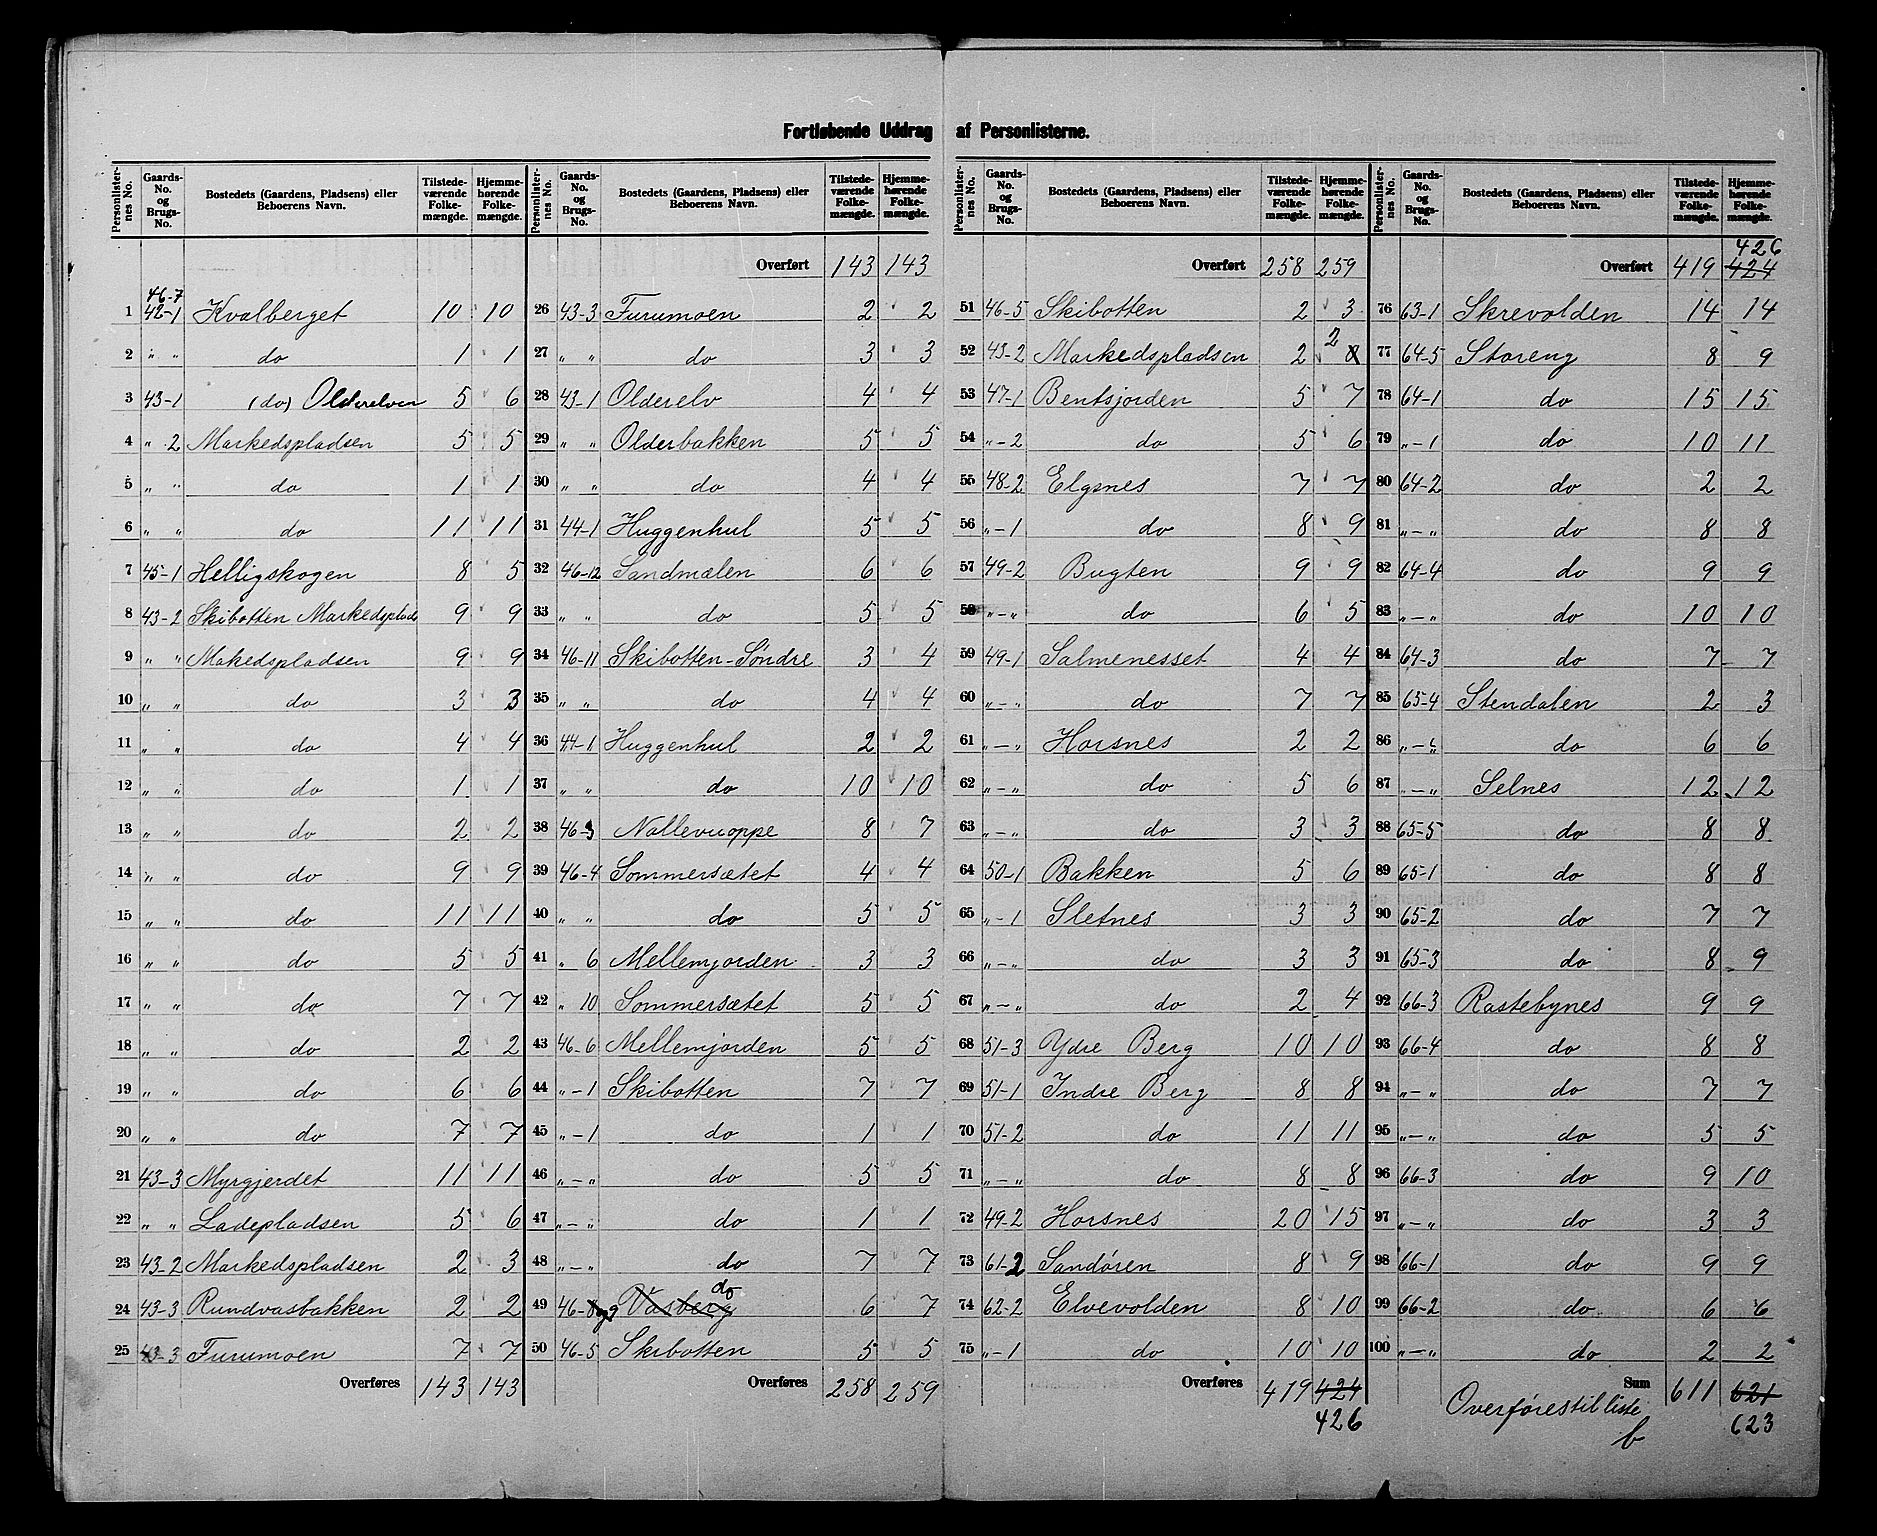 Fortløbende Uddrag af Personlisterne.
Personlisternes No. Gaards-No. og Brugs-No. Bostedets (Gaardens, Pladsens) eller Beboerens Navn. Tilstedeværende Folkemængde. Hjemmehørende Folkemængde.
Overført 143 143
1 46-7 42-1 Kvalberget 10 10
2 " " do 1 1
3 43-1 (do) Olderelven 5 6
4 " 2 Markedspladsen 5 5
5 " " do 1 1
6 " " do 11 11
7 45-1 Helligskogen 8 5
8 43-2 Skibotten Markedsplads 9 9
9 " " Makedspladsen 9 9
10 " " do 3 3
11 " " do 4 4
12 " " do 1 1
13 " " do 2 2
14 " " do 9 9
15 " " do 11 11
16 " " do 5 5
17 " " do 7 7
18 " " do 2 2
19 " " do 6 6
20 " " do 7 7
21 43-3 Myrgjerdet 11 11
22 " " Ladepladsen 5 6
23 43-2 Markedspladsen 2 3
24 43-3 Rundvasbakken 2 2
25 43-3 Furumoen 7 7
Overføres 143 143
Personlisternes No. Gaards-No. og Brugs-No. Bostedets (Gaardens, Pladsens) eller Beboerens Navn. Tilstedeværende Folkemængde. Hjemmehørende Folkemængde.
26 43-3 Furumoen 2 2
27 " " do 3 3
28 43-1 Olderelv 4 4
29 " " Olderbakken 5 5
30 " " do 4 4
31 44-1 Huggenhul 5 5
32 46-12 Sandmælen 6 6
33 " " do 5 5
34 46-11 Skibotten-Søndre 3 4
35 " " do 4 4
36 44-1 Huggenhul 2 2
37 " " do 10 10
38 46-3 Nallevuoppe 8 7
39 46-4 Sommersætet 4 4
40 " " do 5 5
41 " 6 Mellemjorden 3 3
42 " 10 Sommersætet 5 5
43 46-6 Mellemjorden 5 5
44 "-1 Skibotten 7 7
45 "-1 do 1 1
46 "-" do 5 5
47 "-" do 1 1
48 "-" do 7 7
49 46-8 og 9 Vasberg do 6 7
50 46-5 Skibotten 5 5
Overføres 258 259
Personlisternes No. Gaards-No. og Brugs-No. Bostedets (Gaardens, Pladsens) eller Beboerens Navn. Tilstedeværende Folkemængde. Hjemmehørende Folkemængde.
Overført 258 259
51 46-5 Skibotten 2 3
52 43-2 Markedspladsen 2 2
53 47-1 Bentsjorden 5 7
54 "-2 do 5 6
55 48-2 Elgsnes 7 7
56 "-1 do 8 9
57 49-2 Bugten 9 9
58 "-" do 6 5
59 49-1 Salmenesset 4 4
60 "-" do 7 7
61 "-" Horsnes 2 2
62 "-" do 5 6
63 "-" do 3 3
64 50-1 Bakken 5 6
65 "-1 Sletnes 3 3
66 "-" do 3 3
67 "-" do 2 4
68 51-3 Ydre Berg 10 10
69 51-1 Indre Berg 8 8
70 51-2 do 11 11
71 "-" do 8 8
72 49-2 Horsnes 20 15
73 61-2 Sandøren 8 9
74 62-2 Elvevolden 8 10
75 "-1 do 10 10
Overføres 419 424
426
Personlisternes No. Gaards-No. og Brugs-No. Bostedets (Gaardens, Pladsens) eller Beboerens Navn. Tilstedeværende Folkemængde. Hjemmehørende Folkemængde.
426
Overført 419 424
76 63-1 Skrevolden 14 14
77 64-5 Storeng 8 9
78 64-1 do 15 15
79 "-1 do 10 11
80 64-2 do 2 2
81 "-" do 8 8
82 64-4 do 9 9
83 "-" do 10 10
84 64-3 do 7 7
85 65-4 Stendalen 2 3
86 "-" do 6 6
87 "-" Selnes 12 12
88 65-5 do 8 8
89 65-1 do 8 8
90 65-2 do 7 7
91 65-3 do 8 9
92 66-3 Rastebynes 9 9
93 66-4 do 8 8
94 "-" do 7 7
95 "-" do 5 5
96 66-3 do 9 10
97 "-" do 3 3
98 66-1 do 9 9
99 66-2 do 6 6
100 "-" do 2 2
Sum 611 621
Overføres til liste 623
b